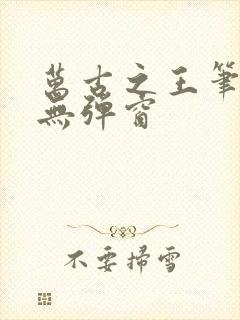 萬古之王筆
無彈窗
不要掃雪